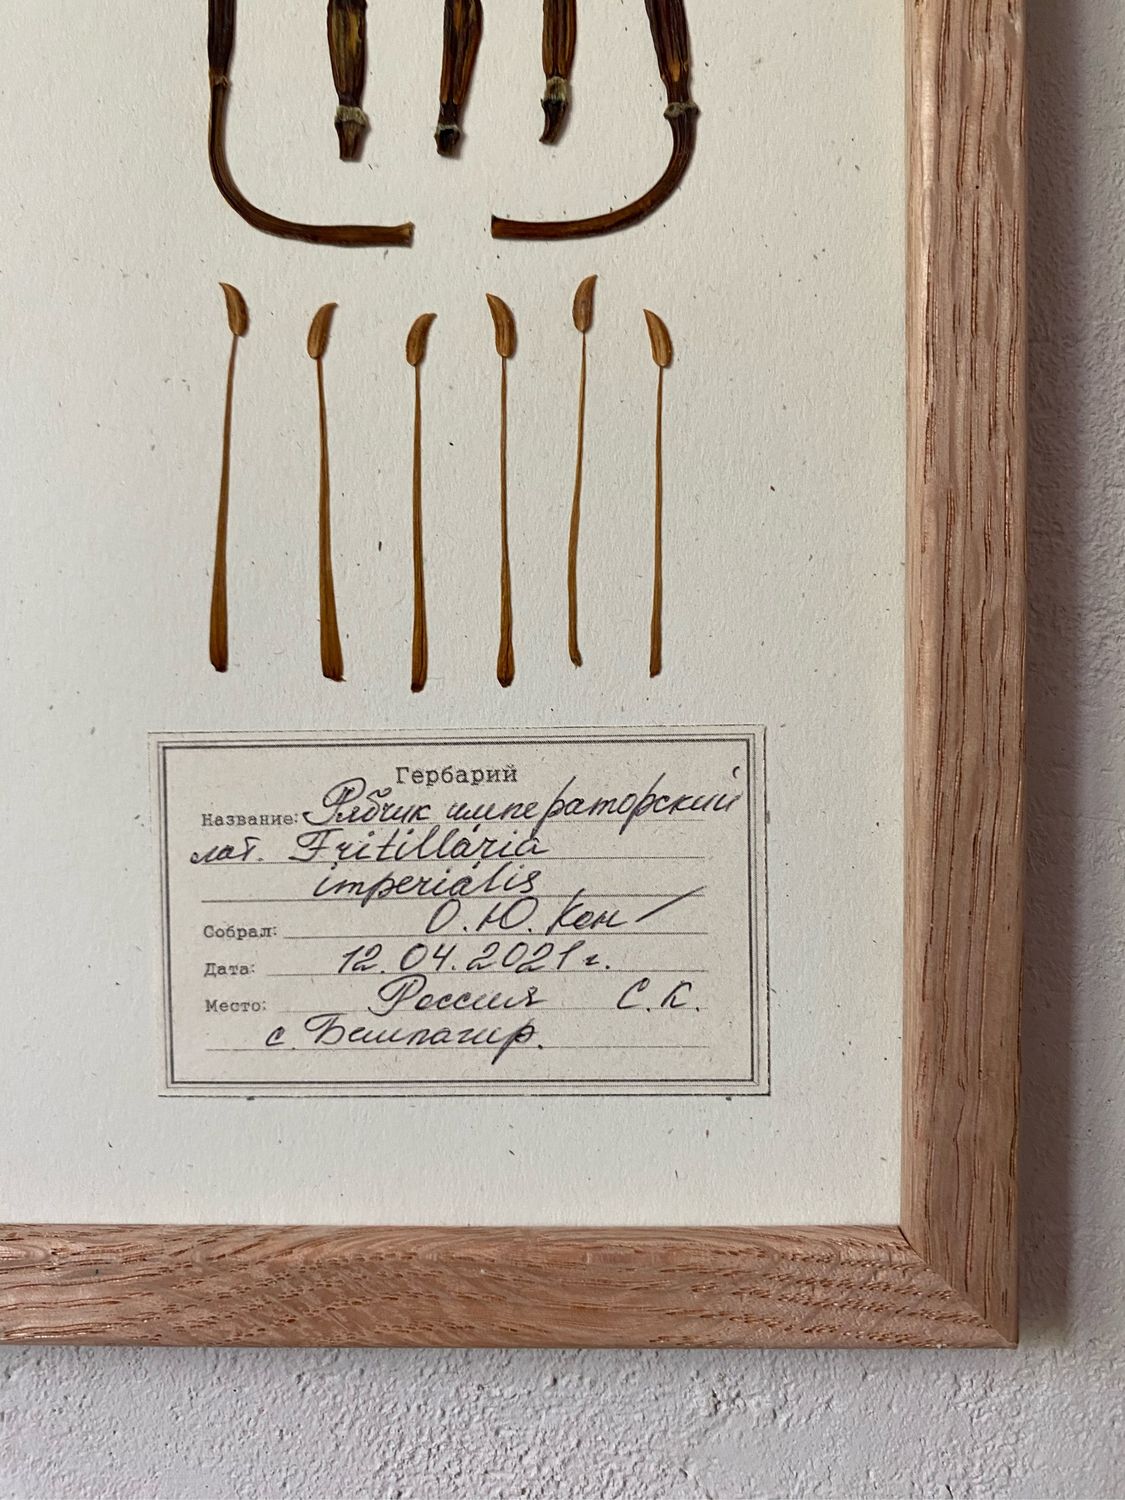 Гербарий
Название: Рябчик императорский
лат. Fritillária
imperiális
Собрал: О.Ю. Кон
Дата: 12.04.2021 г.
Место: Россия С.К.
с. Бешпагир.